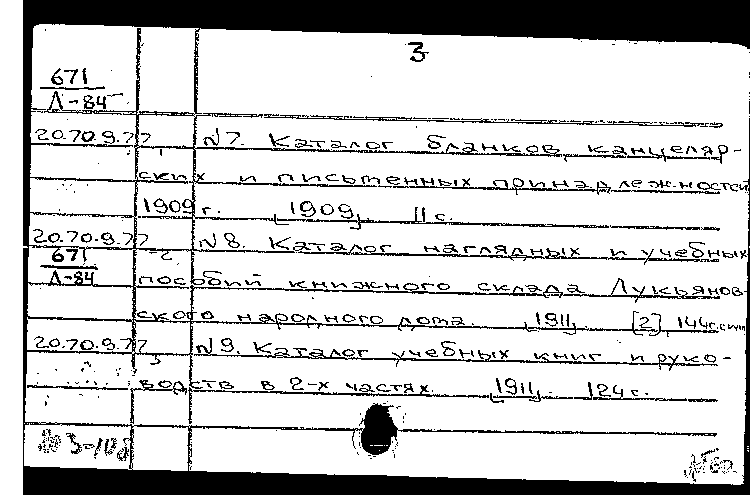 3
671
Л-84
20.70.9.77 N7. Каталог бланков, канцеляр-
1
ских и письменных принадлежностей
1909 г. [1909]. 11 с.
20.70.9.77 N8. Каталог наглядных и учебных
671 -2
Л-84 пособий книжного склада Лукьянов-
ского народного дома. [1911]. [2], 144 с.
20.70.9.77 N9. Каталог учебных книг и руко-
3
водств в 2-х частях. [1911]. 124 с.